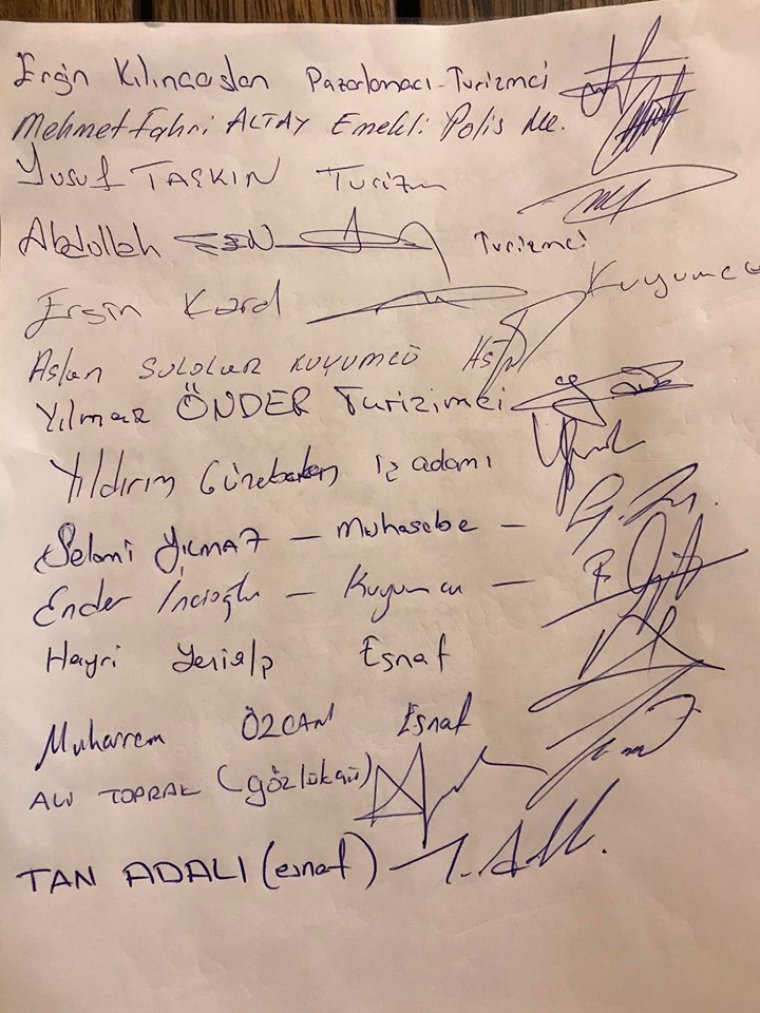 Ergin Kılıncaslan Pazarlamacı-Turizmci
Mehmet Fahri ALTAY Emekli Polis Me.
Yusuf TAŞKIN Turizm
Abdullah ESEN Turizmci
Ersin Karal Kuyumcu
Aslan SULULAR KUYUMCU
Yılmaz ÖNDER Turizimci
Yıldırım Günebakan iş adamı
Selami YILMAZ – Muhasebe –
Ender İncioğlu – Kuyumcu –
Hayri Yenialp Esnaf
Muharrem ÖZCAN Esnaf
ALİ TOPRAK (gözlükçü)
TAN ADALI (esnaf)